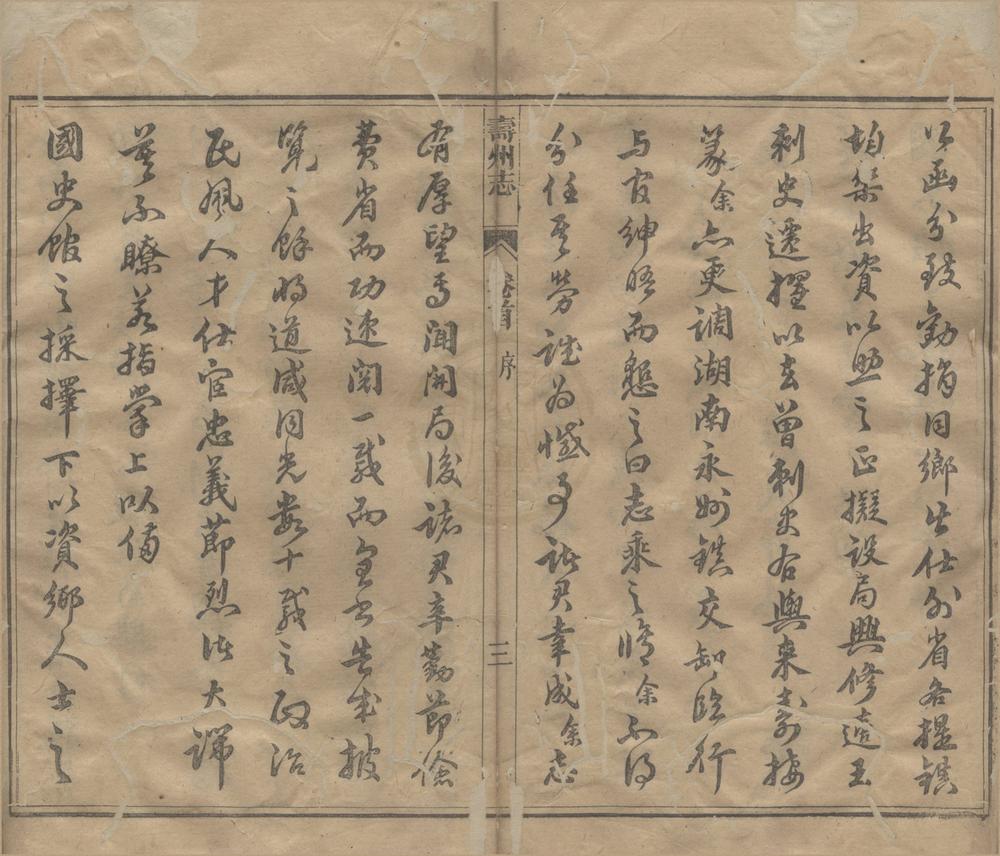 公函分致勸捐同鄉出仕外省各提鎮
均集出資以興之正擬設局興修適王
刺史遷擢以去曾刺史右輿來蒞接
篆余亦更調湖南永州鎮交卸臨行
与官紳晤而懇之曰志乘之修余不得
分任其勞誰為憾事諸君幸成余志
壽州志
卷首
序
三
有厚望焉聞開局後諸君辛勤節儉
費省而功速閱一載而全書告成披
覽之餘將道咸同光數十載之政治
民風人才仕宦忠義節烈諸大端
莫不瞭若指掌上以備
國史館之採擇下以資鄉人士之